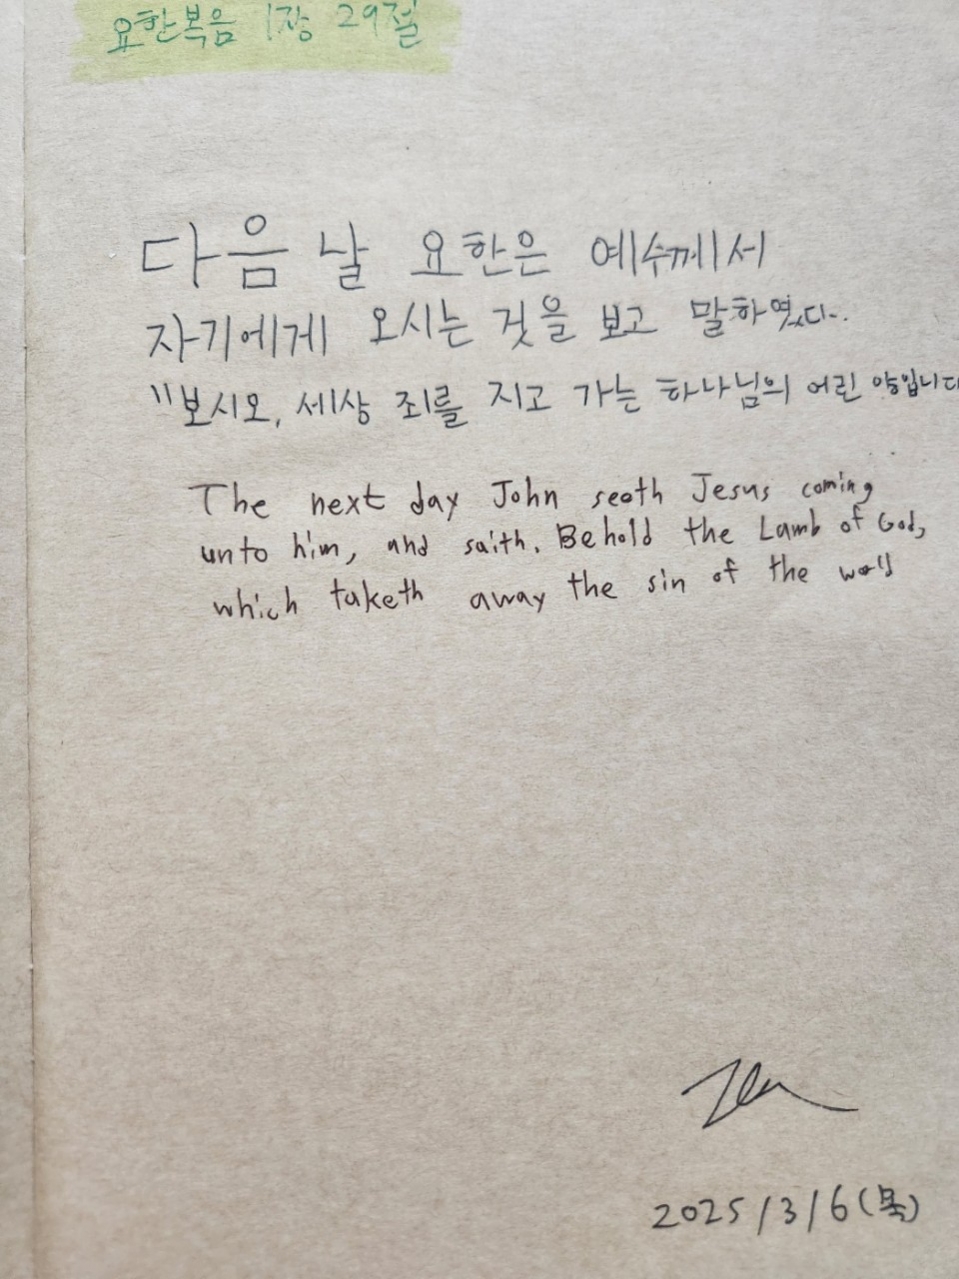 요한복음 1장 29절
다음 날 요한은 예수께서
자기에게 오시는 것을 보고 말하였다.
"보시오, 세상 죄를 지고 가는 하나님의 어린 양입니다
The next day John seeth Jesus coming
unto him, and saith. Behold the Lamb of God,
which taketh away the sin of the world
2025/3/6(목)